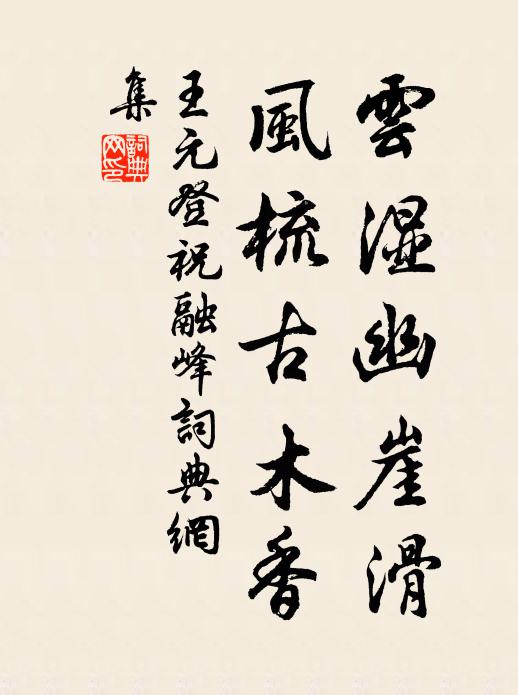 雲濕幽崖滑
風梳古木香
王元登祝融峰詞典網
集
詞典
網印